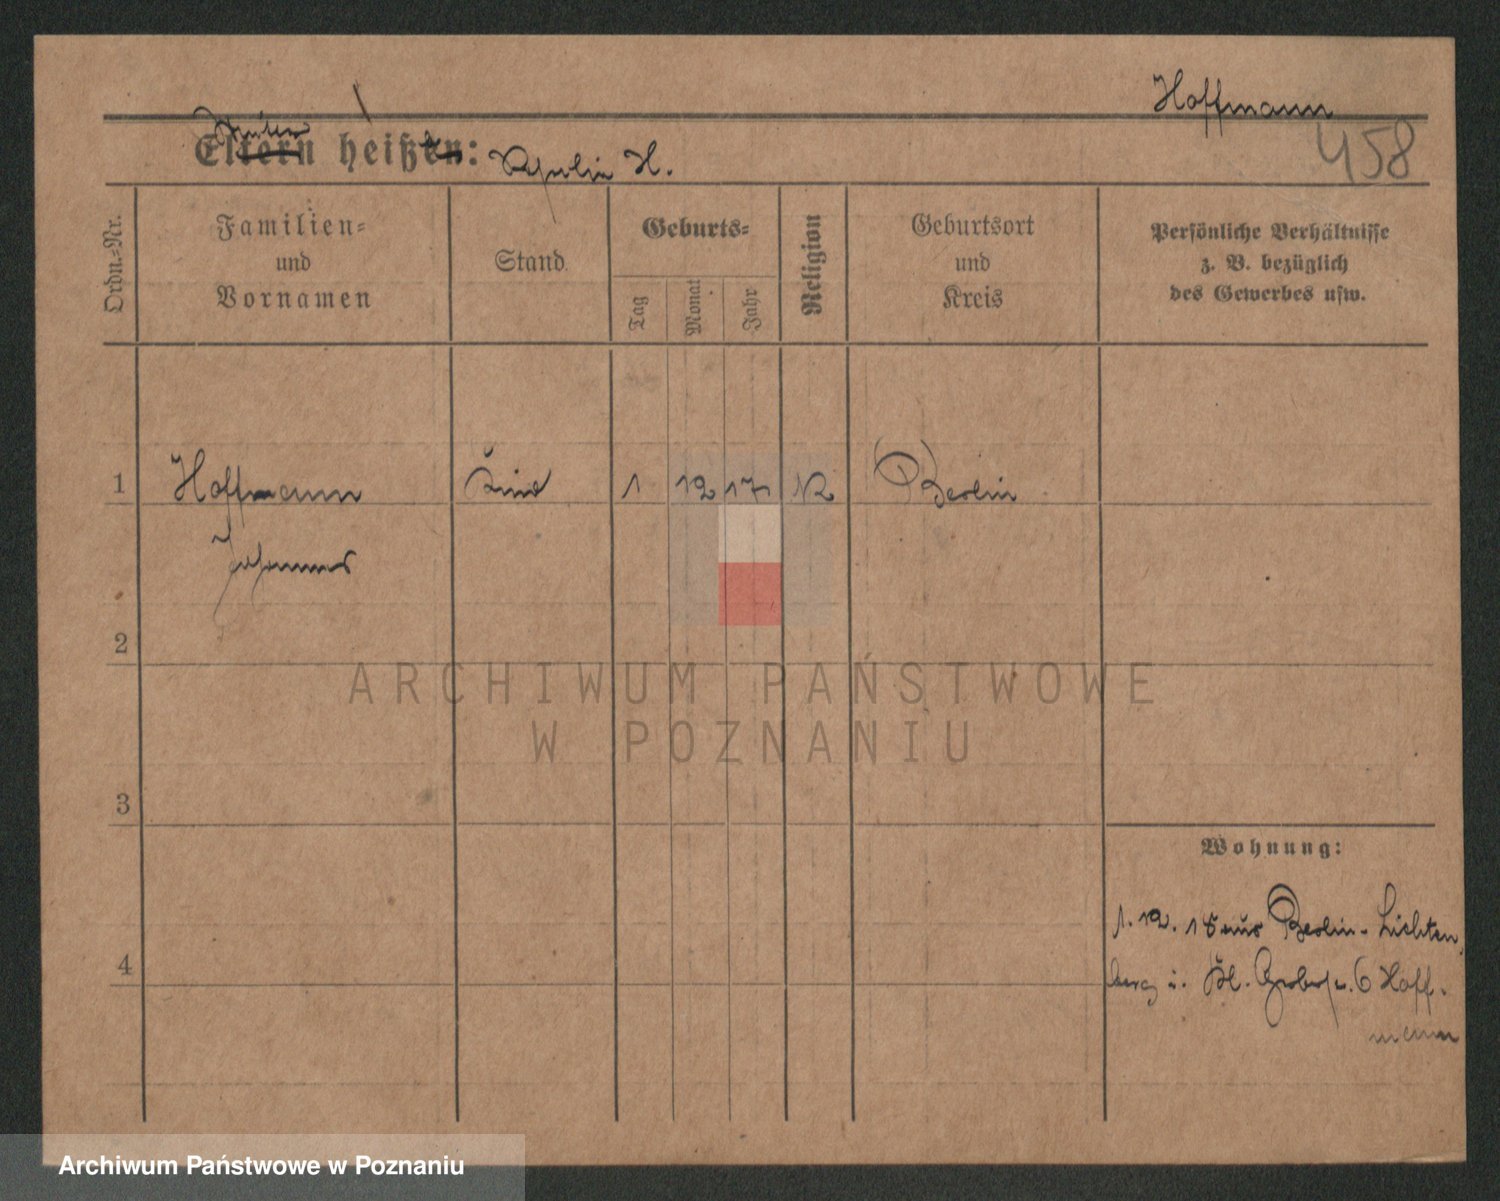 Hoffmann
458
Mutter
Eltern heißen: H.
Ordn.=Nr.
Familien=
und
Vornamen
Stand
Geburts=
Tag
Monat
Jahr
Religion
Geburtsort
und
Kreis
Persönliche Verhältnisse
z. B. bezüglich
des Gewerbes usw.
1 Hoffmann Kind 1 12 17 K Berlin
Johannes
2
ARCHIWUM PAŃSTWOWE
W POZNANIU
3
Wohnung:
1. 12. 18 aus Berlin-Lichten
4
berg i. Kl. 6 Hoff-
mann
Archiwum Państwowe w Poznaniu